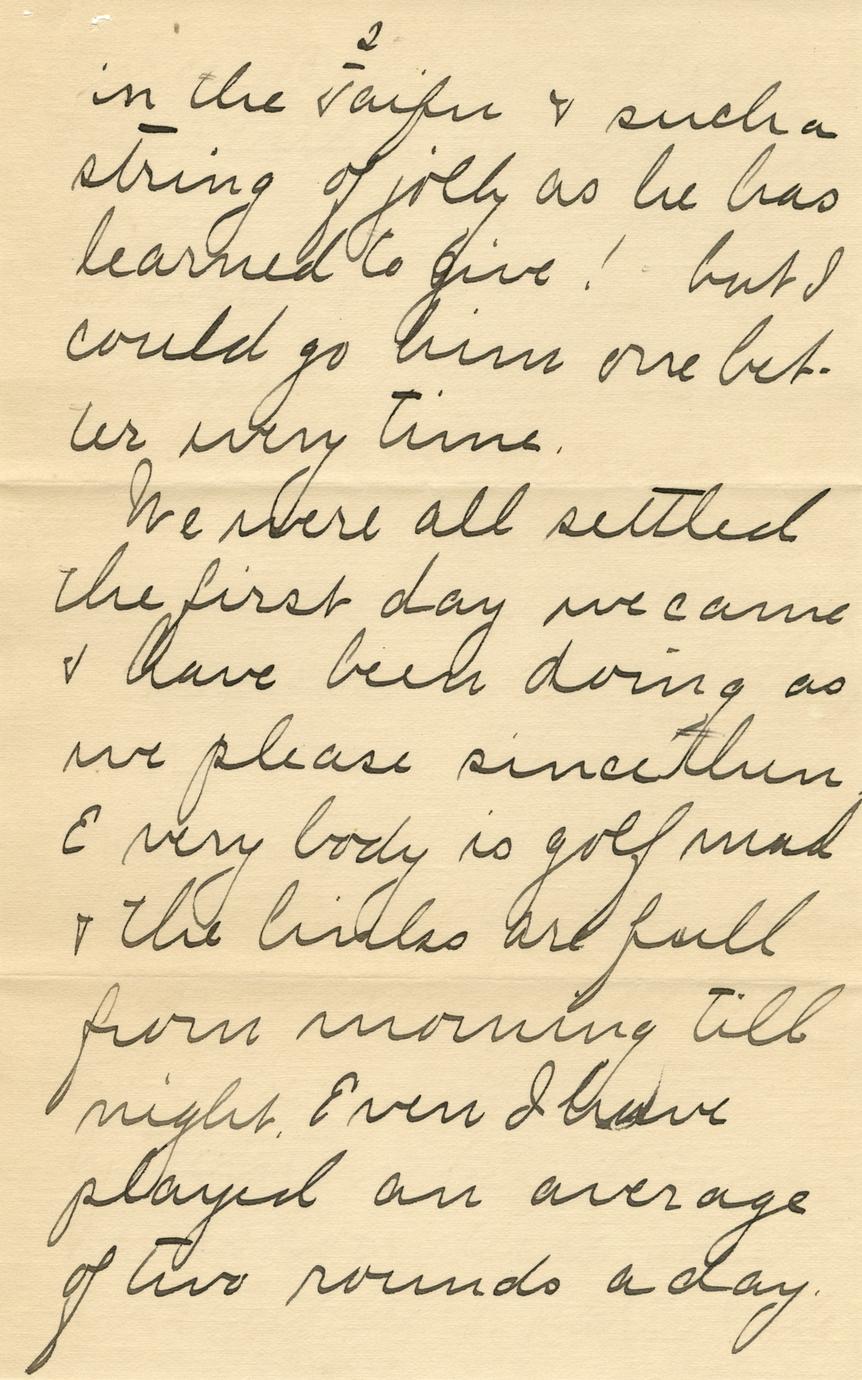 2
in the Taifu & such a
string of jolly as he has
learned to give! but I
could go him one bet-
ter very time.
We were all settled
the first day we came
& have been doing as
we please since then,
Every body is golf mad
& the links are full
from morning till
night. Even I have
played an average
of two rounds a day.